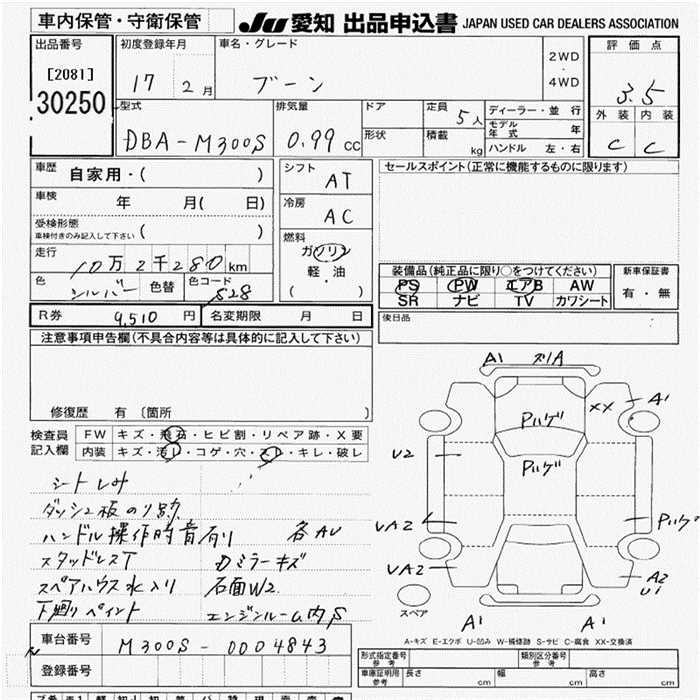 車内保管・守衛保管
JU 愛知 出品申込書 JAPAN USED CAR DEALERS ASSOCIATION
出品番号
[2081]
30250
初度登録年月
17 2月
車名・グレード
ブーン
2WD
・
4WD
評価点
3.5
外装 内装
C C
型式
DBA-M300S
排気量
0.99 CC
ドア
形状
定員
5人
積載
kg
ディーラー・並 行
モデル年式 年
ハンドル 左・右
車歴
自家用・( )
車検
年 月( 日)
受検形態
車検付きのみ記入して下さい ( )
走行
10万2千280km
色
シルバー
色替
色コード
S28
シフト
AT
冷房
AC
燃料
ガソリン
軽・油
・
( )
セールスポイント(正常に機能するものに限ります)
装備品(純正品に限り○をつけてください)
PS PW エアB AW
SR ナビ TV カワシート
新車保証書
有・無
後日品
R券 9,510 円
名変期限 月 日
注意事項申告欄(不具合内容等は具体的に記入して下さい)
修復歴 有 〔箇所 〕
検査員
記入欄
FW キズ・飛石・ヒビ割・リペア跡・X要
内装 キズ・汚レ・コゲ・穴・スレ・キレ・破レ
シートしみ
ダッシュ板のり跡
ハンドル操作時音有り 各AU
スタッドレスT Dミラーキズ
スペアハウス水入り 石面W2
下廻りペイント エンジンルーム内S
車台番号
M300S-0004843
登録番号
A1 ズリA
XX A1
Pハゲ
Pハゲ
U2
UA2
Pハゲ
UA2
A2
U1
スペア
A1 A1
A-キズ E-エクボ U-凹み W-補修跡 S-サビ C-腐食 XX-交換済
形式指定番号
参考
類別区分番号
参考
車庫証明用
参考
長さ cm 幅 cm 高さ cm